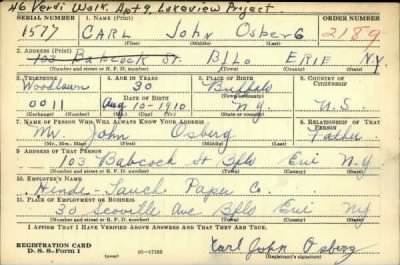 46 Verdi Walk. Apt 9, Lakeview Project.
SERIAL NUMBER 1. NAME (Print) ORDER NUMBER
1577 CARL John OsberG 2189
(First) (Middle) (Last)
2. ADDRESS (Print)
103 Babcock St. BFLO ERIE N.Y.
(Number and street or R. F. D. number) (Town) (County) (State)
3. TELEPHONE 4. AGE IN YEARS 5. PLACE OF BIRTH 6. COUNTRY OF CITIZENSHIP
Woodlawn 30 Buffalo
DATE OF BIRTH (Town or county)
0011 Aug 10-1910 N.Y. U.S.
(Exchange) (Number) (Mo.) (Day) (Yr.) (State or country)
7. NAME OF PERSON WHO WILL ALWAYS KNOW YOUR ADDRESS 8. RELATIONSHIP OF THAT PERSON
Mr. John Osberg Father
(Mr., Mrs., Miss) (First) (Middle) (Last)
9. ADDRESS OF THAT PERSON
103 Babcock St Bflo Erie N-Y
(Number and street or R. F. D. number) (Town) (County) (State)
10. EMPLOYER'S NAME
Hinde-Dauch Paper Co.
11. PLACE OF EMPLOYMENT OR BUSINESS
30 Scoville Ave Bflo Erie NY
(Number and street or R. F. D. number) (Town) (County) (State)
I AFFIRM THAT I HAVE VERIFIED ABOVE ANSWERS AND THAT THEY ARE TRUE.
REGISTRATION CARD
D. S. S. Form 1 16-17105 Carl John Osberg
(Registrant's signature)